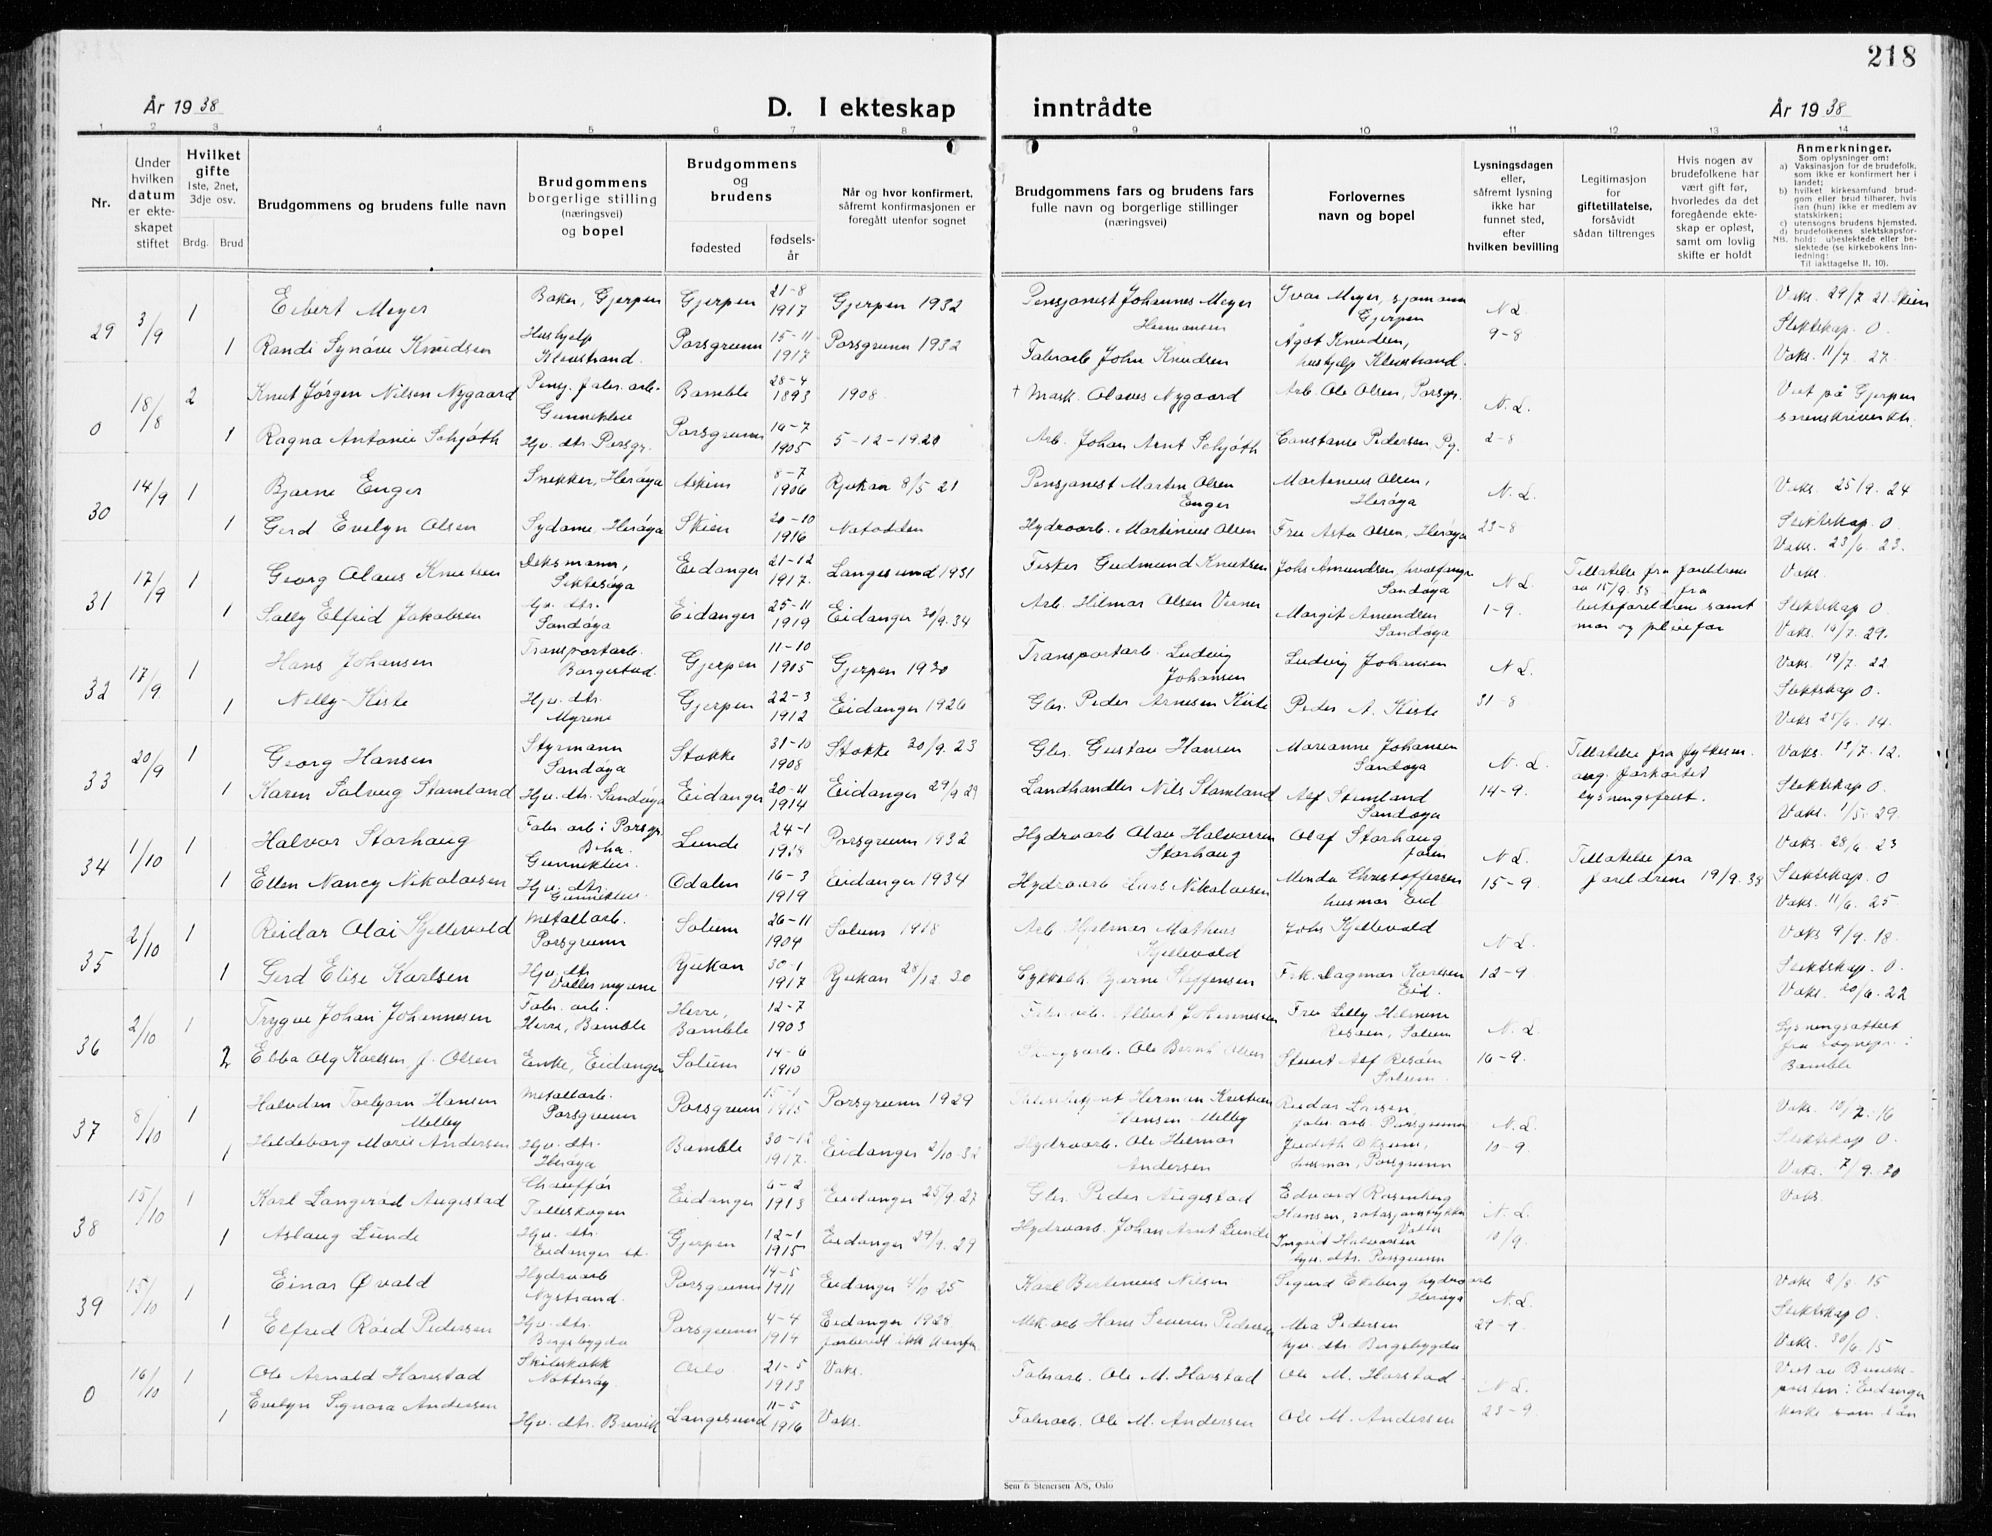 218
År 1938
D. I ekteskap inntrådte
År 1938
1 2 3 4 5 6 7 8 9 10 11 12 13 14
Nr.
Under hvilken datum er ekteskapet stiftet
Hvilket gifte
1ste, 2net, 3dje osv.
Brdg. Brud
Brudgommens og brudens fulle navn
Brudgommens borgerlige stilling (næringsvei) og bopel
Brudgommens og brudens
fødested
fødselsår
Når og hvor konfirmert, såfremt konfirmasjonen er foregått utenfor sognet
Brudgommens fars og brudens fars fulle navn og borgerlige stillinger (næringsvei)
Forlovernes navn og bopel
Lysningsdagen eller, såfremt lysning ikke har funnet sted, efter hvilken bevilling
Legitimasjon for giftetillatelse, forsåvidt sådan tiltrenges
Hvis nogen av brudefolkene har vært gift før, hvorledes da det foregående ekteskap er opløst, samt om lovlig skifte er holdt
Anmerkninger.
Som oplysninger om:
a) Vaksinasjon for de brudefolk, som ikke er konfirmert her i landet;
b) hvilket kirkesamfund brudgom eller brud tilhører, hvis han (hun) ikke er medlem av statskirken;
c) utensogns brudens hjemsted.
d) brudefolkenes slektskapsforhold: ubeslektede eller beslektede (se kirkebokens Innledning:
NB. Til iakttagelse II, 10).
29 3/9 1 Eibert Meyer Baker, Gjerpen Gjerpen 21-8 1917 Gjerpen 1932 Pensjonist Johannes Meyer Hermansen Ivar Meyer, sjømann Gjerpen N L 9-8 Vaks. 29/7 21. Skien
Slektskap. 0.
1 Randi Synøve Knudsen Hushjelp Klevstrand. Porsgrunn 15-11 1917 Porsgrunn 1932 Fabrarb John Knudsen Ågot Knudsen, hushjelp Klevstrand. Vaks. 11/7 27.
0 18/8 2 Knut Jørgen Nilsen Nygaard Pensj. fabr. arb. Gunneklev Bamble 28-4 1893 1908. † Mask. Olaves Nygaard Arb. Ole Olsen, Porsgr. N. L. 2-8 Viet på Gjerpen sorenskriverktr.
1 Ragna Antonie Schjøth Hjv. dtr. Porsgr. Porsgrunn 1905 5-12-1920 Arb. Johan Arnt Schjøth Constanse Pedersen, Pg.
30 14/9 1 Bjarne Enger Snekker, Herøya Askim 8-7 1906 Rjukan 8/5 21 Pensjonist Marten Olsen Enger Martinius Olsen, Herøya N. L. 23-8 Vaks. 25/9. 24
Slektskap. 0
1 Gerd Evelyn Olsen Sydame, Herøya Skien 20-10 1916 Notodden Hydroarb. Martinius Olsen Fru Asta Olsen, Herøya Vaks. 23/6. 23.
31 17/9 1 Georg Olaus Knutsen Dekksmann, Siktesøya Eidanger 21-12 1917. Langesund 1931 Fisker Gudmund Knutsen Johs Amundsen, Sandøya N L 1-9. Tillatelse fra foreldrene av 15/9. 38 - fra samt mor og pleiefar Vaks.
Slektskap 0
1 Sally Elfrid Jakobsen Hjv. dtr. Sandøya Eidanger 25-11 1919 Eidanger 30/9. 34 Arb. Hilmar Olsen Verner Margit Amundsen Sandøya
32 17/9 1 Hans Johansen Transportarb. Borgestad. Gjerpen 11-10 Gjerpen 1930 Transportarb. Ludvig Johansen Ludvig Johansen N L. 31-8 Vaks. 19/7. 22
Slektskap 0.
1 Nelly Kiste Hjv. dtr. Myrene Gjerpen 22-3 1912 Eidanger 1926 Gbr. Peder Arnesen Kiste Peder A. Kiste Vaks 25/6. 14.
33 20/9 1 Georg Hansen Styrmann Sandøya Stokke 31-10 1908 Stokke 30/9. 23 Gbr. Gustav Hansen Marianne Johansen Sandøya N. L 14-9. Tillatelse fra fylkesm. ang. forkortet lysningsfrist. Vaks. 13/7. 12.
Slektskap 0
1 Karen Solveig Stamland Hjv. dtr. Sandøya Eidanger 20-11 1914 Eidanger 29/9 29 Landhandler Nils Stamland Alf Stamland Sandøya Vaks. 1/5. 29.
34 1/10 1 Halvor Storhaug Fabr. arb i Porsgr. Gunneklev. Lunde 24-1 Porsgrunn 1932 Hydroarb Olav Halvorsen Storhaug Olaf Storhaug N L. 15-9. Tillatelse fra foreldrene 19/9. 38 Vaks. 28/6. 23
Slektskap. 0
1 Ellen Nancy Nikolaisen Hjv. dtr. Gunneklev. Odalen 16-3 1919 Eidanger 1934 Hydroarb Lars Nikolaisen Minda Christoffersen husmor Eid. Vaks. 11/6. 25.
35 2/10 1 Reidar Olai Kjellevold Metallarb. Porsgrunn Solum 26-11 1904 Solum 1918 Arb. Hjalmar Mathias Kjellevold Johs Kjellevold N L. 12-9 Vaks 9/9. 18.
Slektskap. 0.
1 Gerd Elise Karlsen Hjv. dtr. Vallermyrene Rjukan 30-1 1917 Rjukan 28/12. 30 Bjarne Steffensen Frk. Dagmar Karlsen Eid. Vaks. 20/6. 22
36 2/10 1 Trygve Johan Johannesen Fabr. arb. Herre, Bamble Herre, Bamble 12-7 1903 Fabr arb. Albert Johannesen Fru Lilly Helmine Solum N. L. 16-9. Lysningsattest fra sognepr. i Bamble
2 Ebba Olg Karlsen f. Olsen Enke, Eidanger Solum 14-6 1910 Ole Bernh Olsen Stuert Alf Solum.
37 8/10 1 Halvdan Torbjørn Hansen Melby Metallarb. Porsgrunn Porsgrunn 15-1 1915 Porsgrunn 1929 Herman Kristian Hansen Melby Reidar Larsen, fabr. arb. Porsgrunn N. L. 10-9. Vaks. 10/7. 16
Slektskap 0.
1 Hildeborg Marie Andersen Hjv. dtr. Herøya Bamble 30-12 1917. Eidanger 2/10-32 Hydroarb. Ole Hilmar Andersen Judith husmor, Porsgrunn Vaks. 7/9. 20
38 15/10 1 Karl Langerød Augestad Chauffør Tollerskogen Eidanger 6-2 1913 Eidanger 25/9. 27 Gbr. Peder Augestad Edvard Rosenberg Hansen, N. L. 10/9. Vaks.
1 Aslaug Lunde Hjv. dtr. Eidanger st. Gjerpen 12-1 1915 Eidanger 29/9. 29 Hydroarb. Johan Arnt Lunde Ingrid Halvorsen hjv. dtr. Porsgrunn
39 15/10 1 Einar Øvald Hydroarb Nystrand. Porsgrunn 14-5 1911 Eidanger 4/10 25 Karl Berlenius Nilsen Sigurd Ekeberg hydroarb Herøya N. L. 29-9. Vaks 2/8. 15
Slektskap 0.
1 Elfred Røid Pedersen Hjv. dtr. Bergsbygda Porsgrunn 4-4 1914 Eidanger 1928 forberedt ikke konfir. Mek arb Hans Severin Pedersen Mia Pedersen hjv. dtr. Bergsbygda Vaks. 30/6. 15
0 16/10 1 Ole Arnold Harstad Nøtterøy. Oslo 21-5 1913 Vaks. Fabrarb. Ole M. Harstad Ole M. Harstad. N L. 23-9. Viet av i Eidanger kirke som lån
1 Evelyn Signora Andersen Hjv. dtr. Brevik Langesund 11-5 1916 Vaks. Fabrarb. Ole M. Andersen Ole M. Andersen
Sem & Stenersen A/S, Oslo